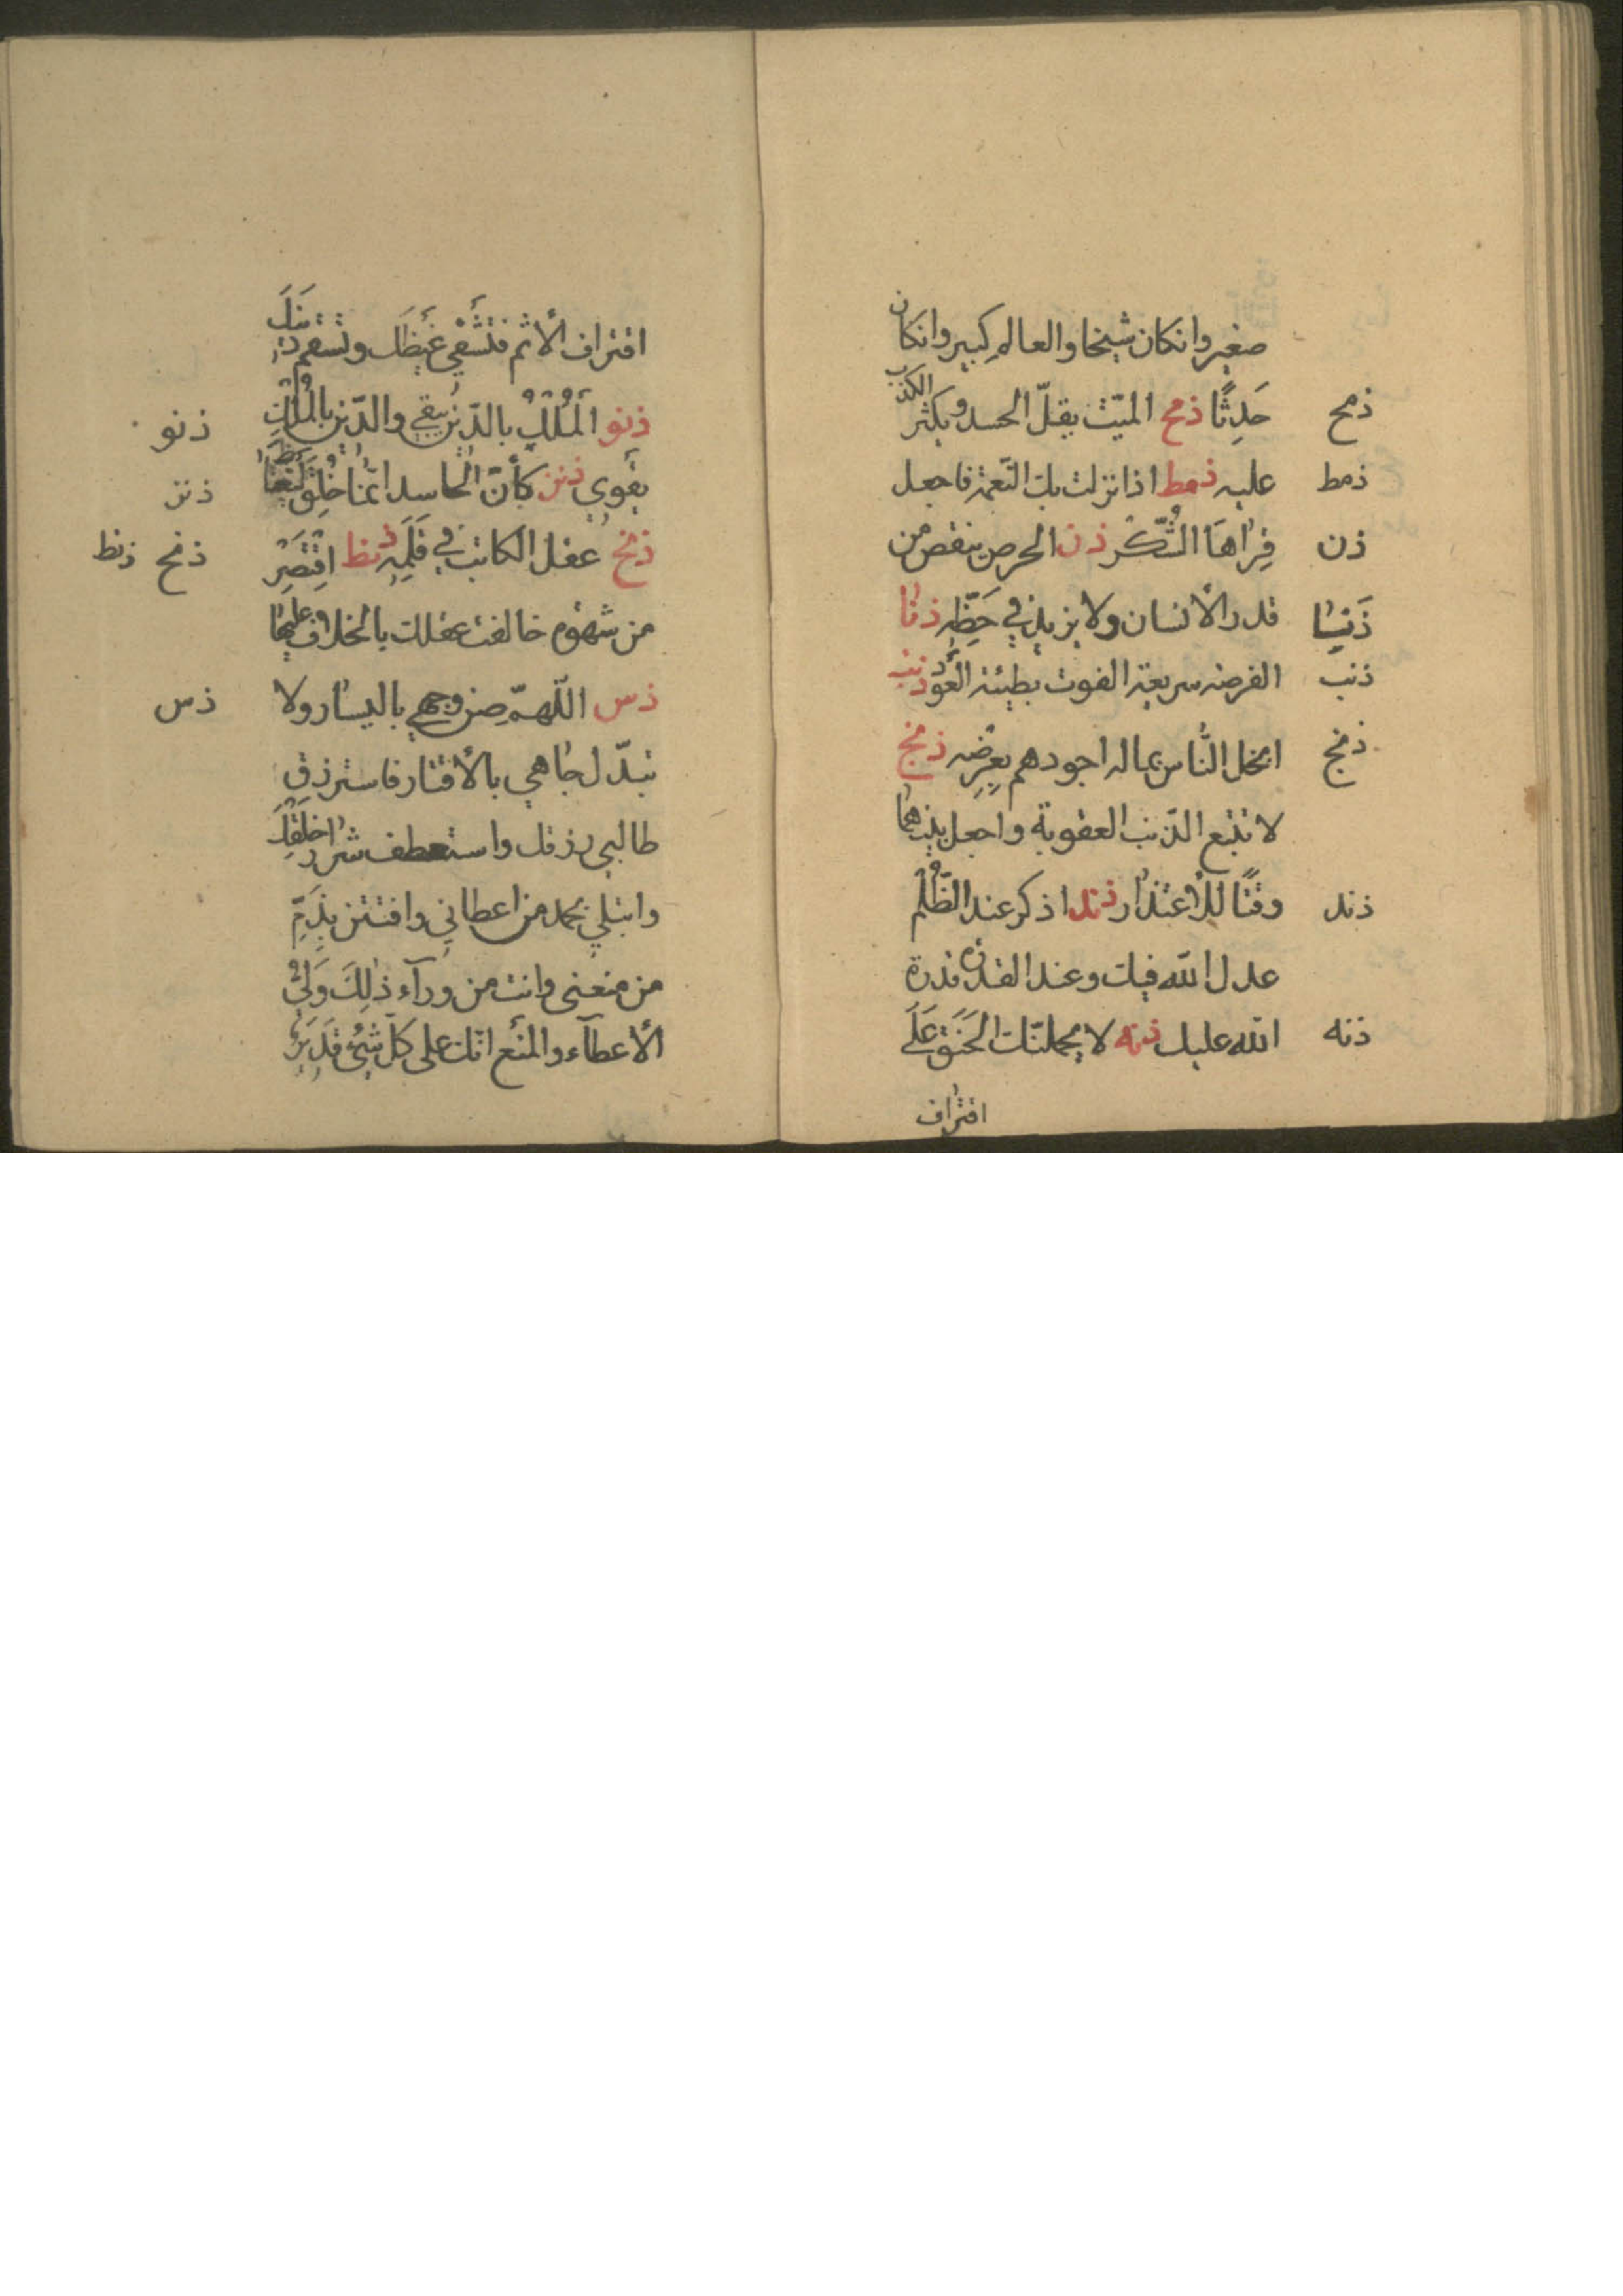 صغير وانكان شيخا والعالم كبير وانكان
ذمح حَدِثًا ذمح الميّت يقلّ الحسد ويكثر الكذب
ذمط عليه ذمط اذا نزلت بك النّعمة فاجعل
ذن قِراهَا الشُّكر ذن الحرص ينقص من
قدر الأنسان ولا يزيد في حَظِّه ذنا
ذنب الفرصة سريعة الفوت بطيئة العَود ذنب
ذنج ابخل النّاس بماله اجودهم بعِرضِه ذنج
لا تتبع الذّنب العقوبة واجعل بينهما
ذند وقتًا للأعتذار ذند اذكر عند الظّلم
عدل الله فيك وعند القدرة قدرة
ذنه الله عليك ذنه لا يحملنّك الحَنَق عَلَى
اقتراف
اقتراف الأثم فتشفي غيظَك وتسقم دينَكَ
ذنو ذنو المُلْكُ بالدّين يبقي والدّين بالمُلْكِ
ذنز يقوي ذنز كأنّ الحاسد انّما خُلِقَ ليغتاظ
ذنح ذنط ذنح عقل الكاتب في قَلَمِه ذنط اقتَصِر
من شهوة خالفت عقلك بالخلاف عليها
ذس ذس اللّهمّ صن وجهي باليسار ولا
تبذّل جاهي بالأقتار فاسترزق
طالبي رزقك واستعطف شرار خلقِكَ
وابتلي بحمد من اعطاني وافتتن بِذَمِّ
من منعنى وانت من ورآء ذٰلِكَ وَلِيُّ
الأعطآء والمنع انّك على كلّ شيْءٍ قَدِيرٌ